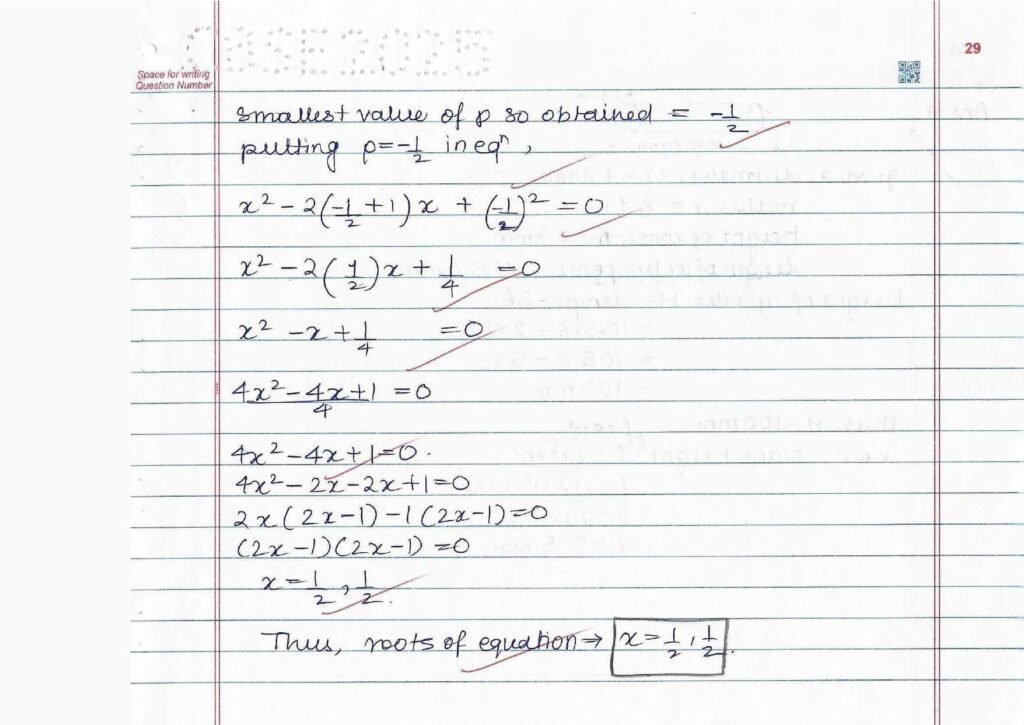 29
Space for writing
Question Number
smallest value of p so obtained = -1/2
putting p=-1/2 in eqⁿ,
x² - 2(-1/2 + 1) x + (-1/2)² = 0
x² - 2(1/2)x + 1/4 = 0
x² - x + 1/4 = 0
(4x² - 4x + 1)/4 = 0
4x² - 4x + 1 = 0.
4x² - 2x - 2x + 1 = 0
2x(2x-1) - 1(2x-1) = 0
(2x-1)(2x-1) = 0
x = 1/2, 1/2.
Thus, roots of equation ⇒ x = 1/2, 1/2.